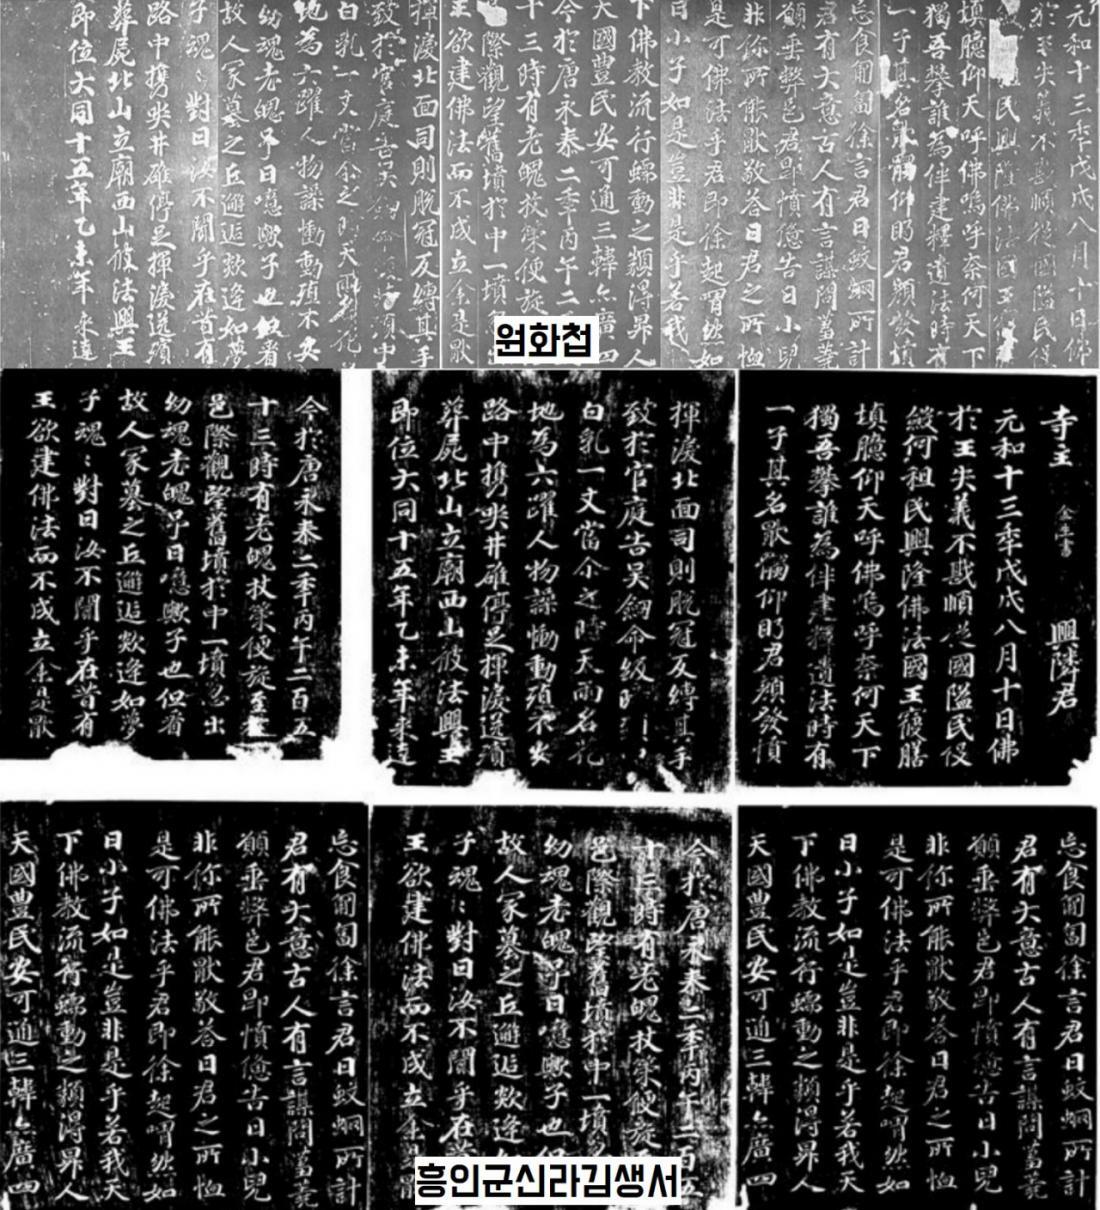 元和十三季戊戌八月十日佛
於王失義不戡順從國隘民役
民興隆佛法國王
填臆仰天呼佛嗚呼奈何天下
獨吾攀誰為伴建釋遺法時有
一子其名猒髑仰眄君顏發憤
忘食匍匐徐言君曰蚊蜹所計
君有大意古人有言謀問蒭蕘
願垂弊邑君即憤憶告曰小兒
非你所能猒敬答曰君之所恤
是可佛法乎君即徐起喟然如
曰小子如是豈非是乎若我天
下佛教流行蠕動之類得昇人
天國豊民安可通三韓亦廣四
今於唐永泰二季丙午二
十三時有老魄杖策便旋
際觀望舊墳於中一墳
王欲建佛法而不成立余是猒
揮淚北面司則脫冠反縛其手
致於官庭告吳
白乳一丈當尒之時天雨名花
地為六躍人物譟慟動殖不安
幼魂老魄吊曰噫歟子也但看
故人冢墓之丘邂逅欻逢如夢
子魂〻對曰汝不聞乎在昔有
路中携哭井碓停足揮淚送殯
葬屍北山立廟西山彼法興王
即位大同十五年乙未年来達
원화첩
寺主 金生書 興隣君
元和十三季戊戌八月十日佛
於王失義不戡順從國隘民役
緻何祖民興隆佛法國王寢膳
填臆仰天呼佛嗚呼奈何天下
獨吾攀誰為伴建釋遺法時有
一子其名猒髑仰眄君顏發憤
揮淚北面司則脫冠反縛其手
致於官庭告吳劒命級
白乳一丈當尒之時天雨名花
地為六躍人物譟慟動殖不安
路中携哭井碓停足揮淚送殯
葬屍北山立廟西山彼法興王
即位大同十五年乙未年来達
今於唐永泰二季丙午二百五
十三時有老魄杖策便旋至
邑際觀望舊墳於中一墳忽出
幼魂老魄吊曰噫歟子也但看
故人冢墓之丘邂逅欻逢如夢
子魂〻對曰汝不聞乎在昔有
王欲建佛法而不成立余是猒
忘食匍匐徐言君曰蚊蜹所計
君有大意古人有言謀問蒭蕘
願垂弊邑君即憤憶告曰小兒
非你所能猒敬答曰君之所恤
是可佛法乎君即徐起喟然如
曰小子如是豈非是乎若我天
下佛教流行蠕動之類得昇人
天國豊民安可通三韓亦廣四
今於唐永泰二季丙午二百五
十三時有老魄杖策便旋
邑際觀望舊墳於中一墳
幼魂老魄吊曰噫歟子也但
故人冢墓之丘邂逅欻逢
子魂〻對曰汝不聞乎在
王欲建佛法而不成立余
忘食匍匐徐言君曰蚊蜹所計
君有大意古人有言謀問蒭蕘
願垂弊邑君即憤憶告曰小兒
非你所能猒敬答曰君之所恤
是可佛法乎君即徐起喟然如
曰小子如是豈非是乎若我天
下佛教流行蠕動之類得昇人
天國豊民安可通三韓亦廣四
흥인군신라김생서